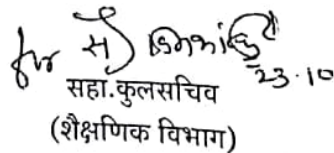 23.10
सहा.कुलसचिव
(शैक्षणिक विभाग)